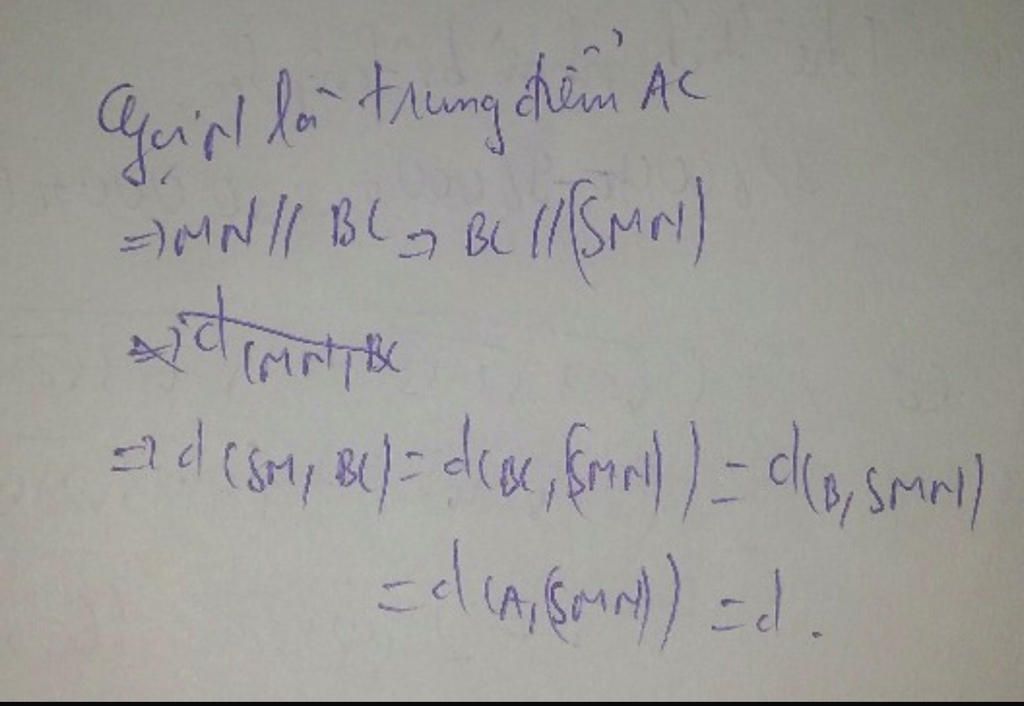 Gọi N là trung điểm AC
=> MN // BC => BC // (SMN)
=> d(MN, BC
=> d(SM, BC) = d(BC, (SMN)) = d(B, SMN)
= d(A, (SMN)) = d.